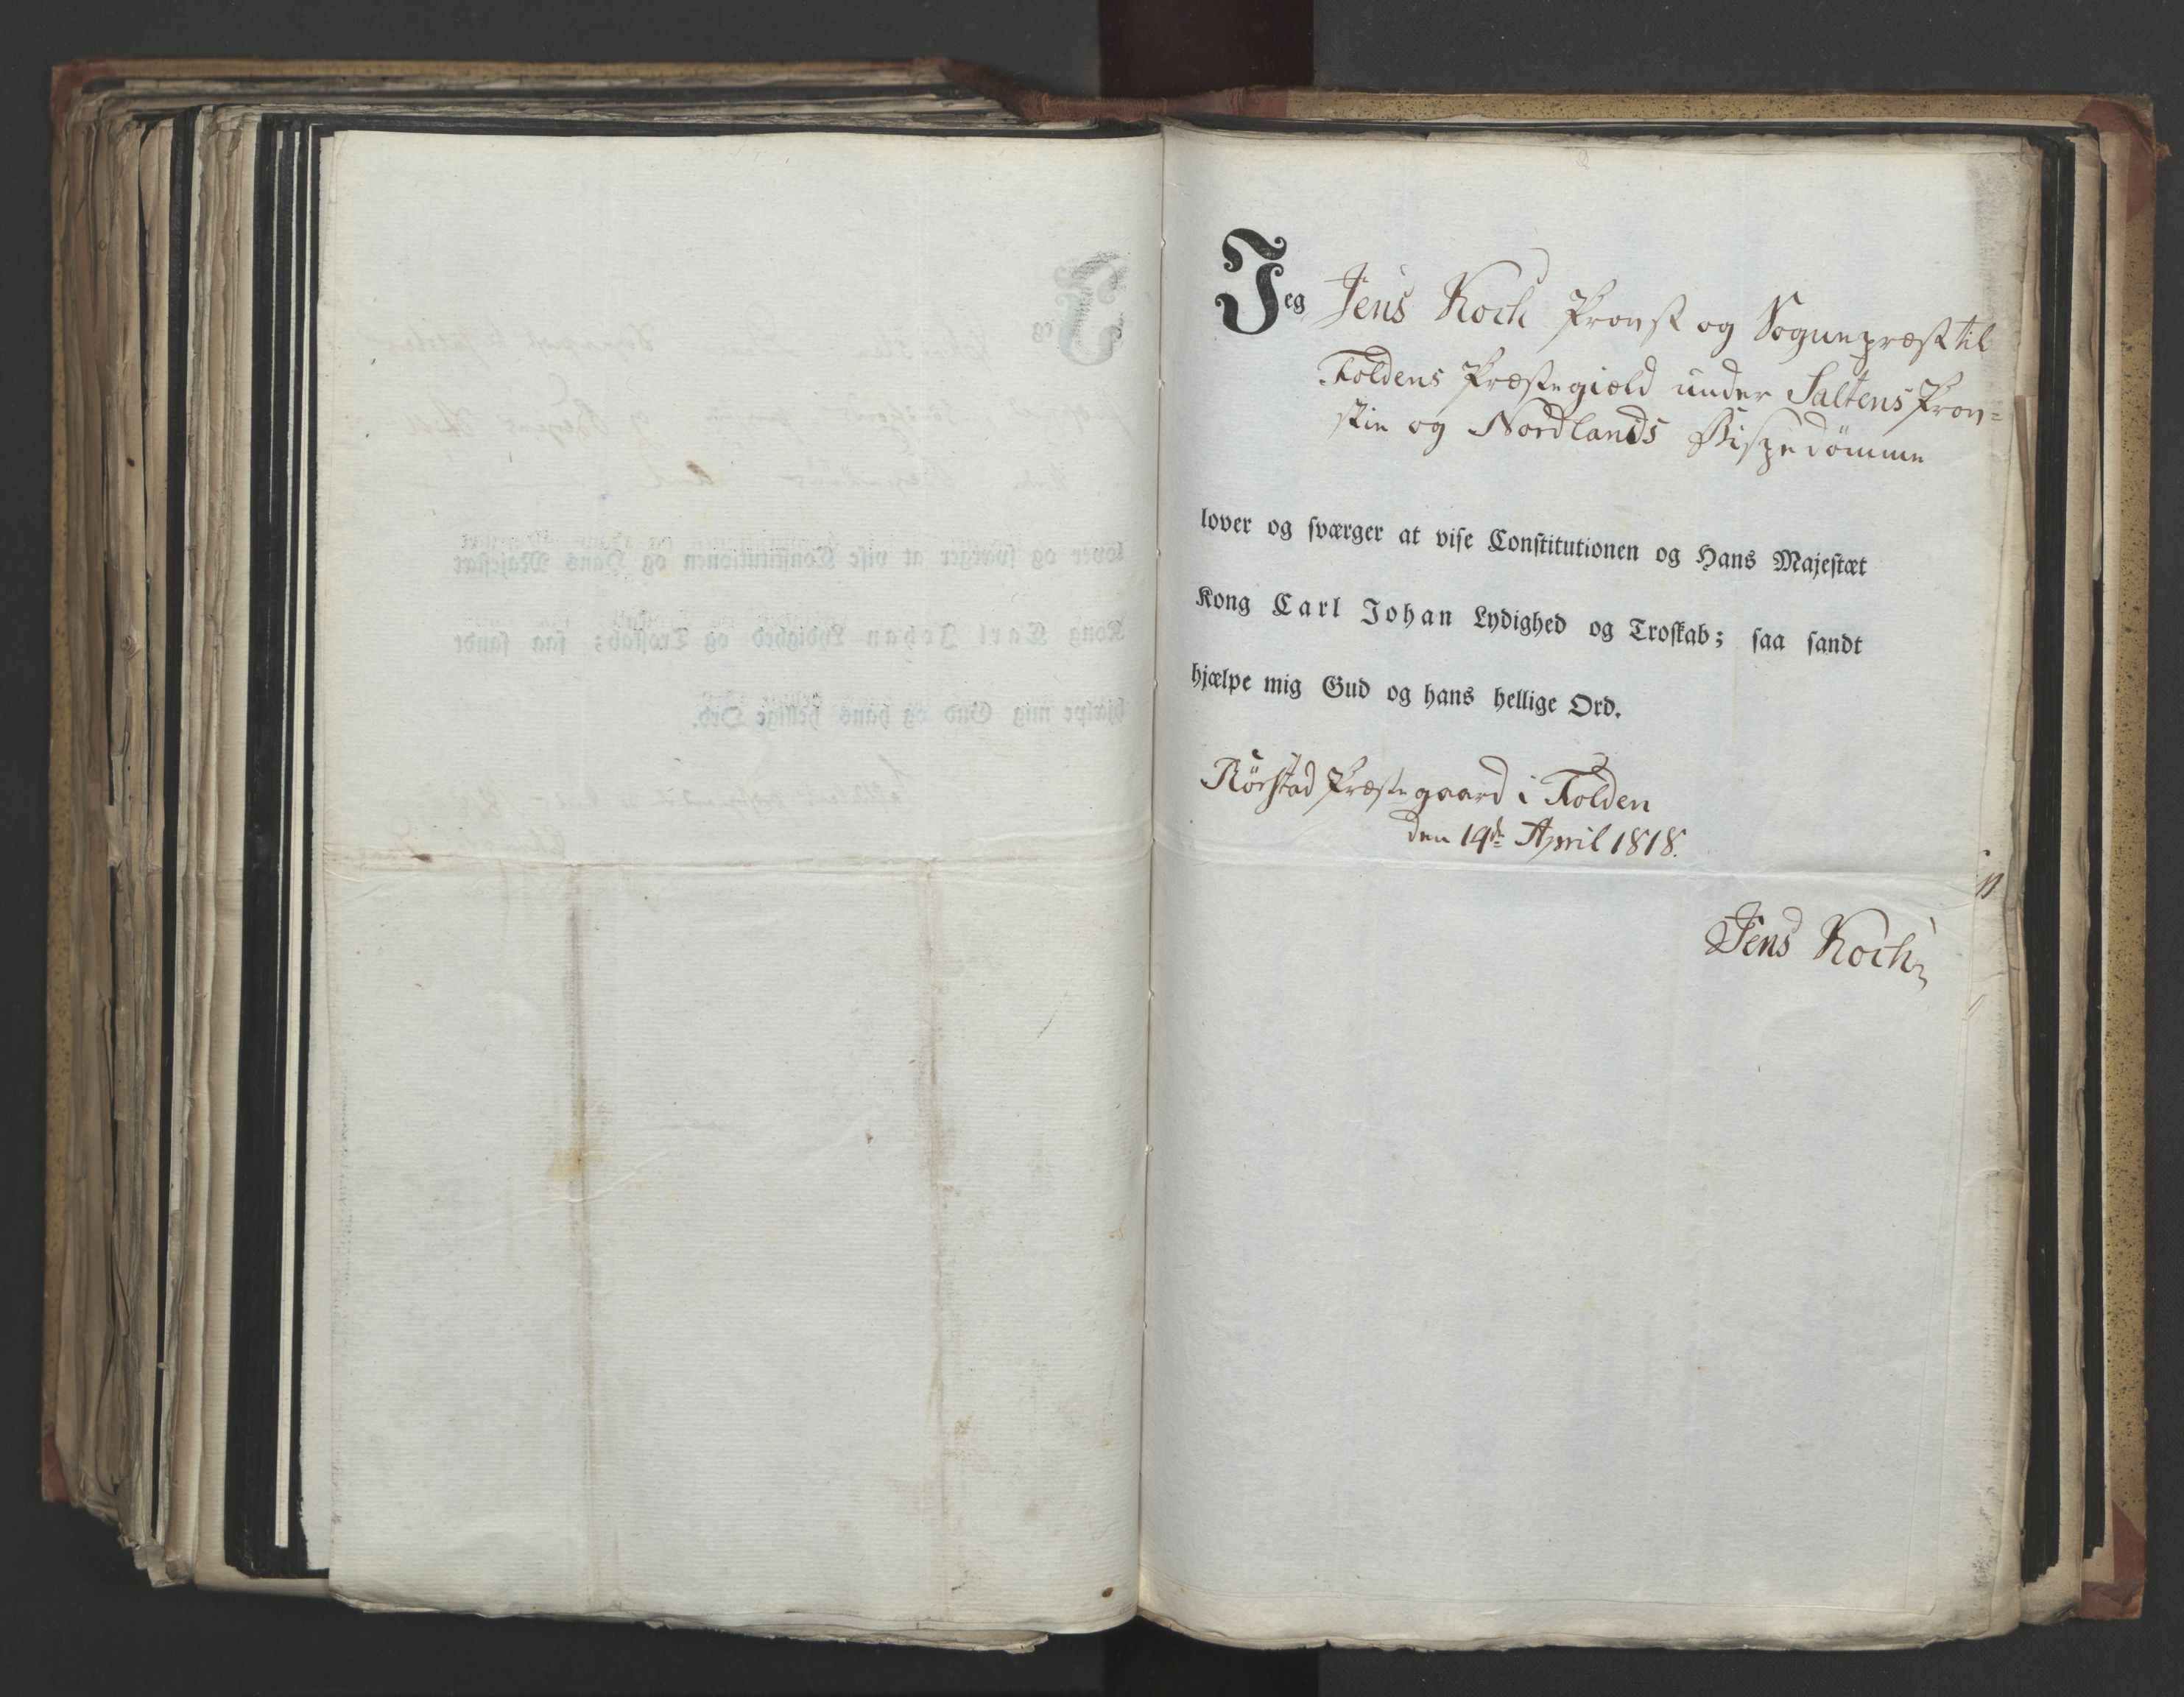 Jeg Jens Koch Provst og Sognepræst til
Foldens Præstegiæld under Saltens Prov=
stie og Nordlands Bispedömme
lover og sværger at vise Constitutionen og Hans Majestæt
Kong Carl Johan Lydighed og Troskab; saa sandt
hjælpe mig Gud og hans hellige Ord.
Rörstad Præstegaard i Folden
den 14de April 1818.
Jens Koch